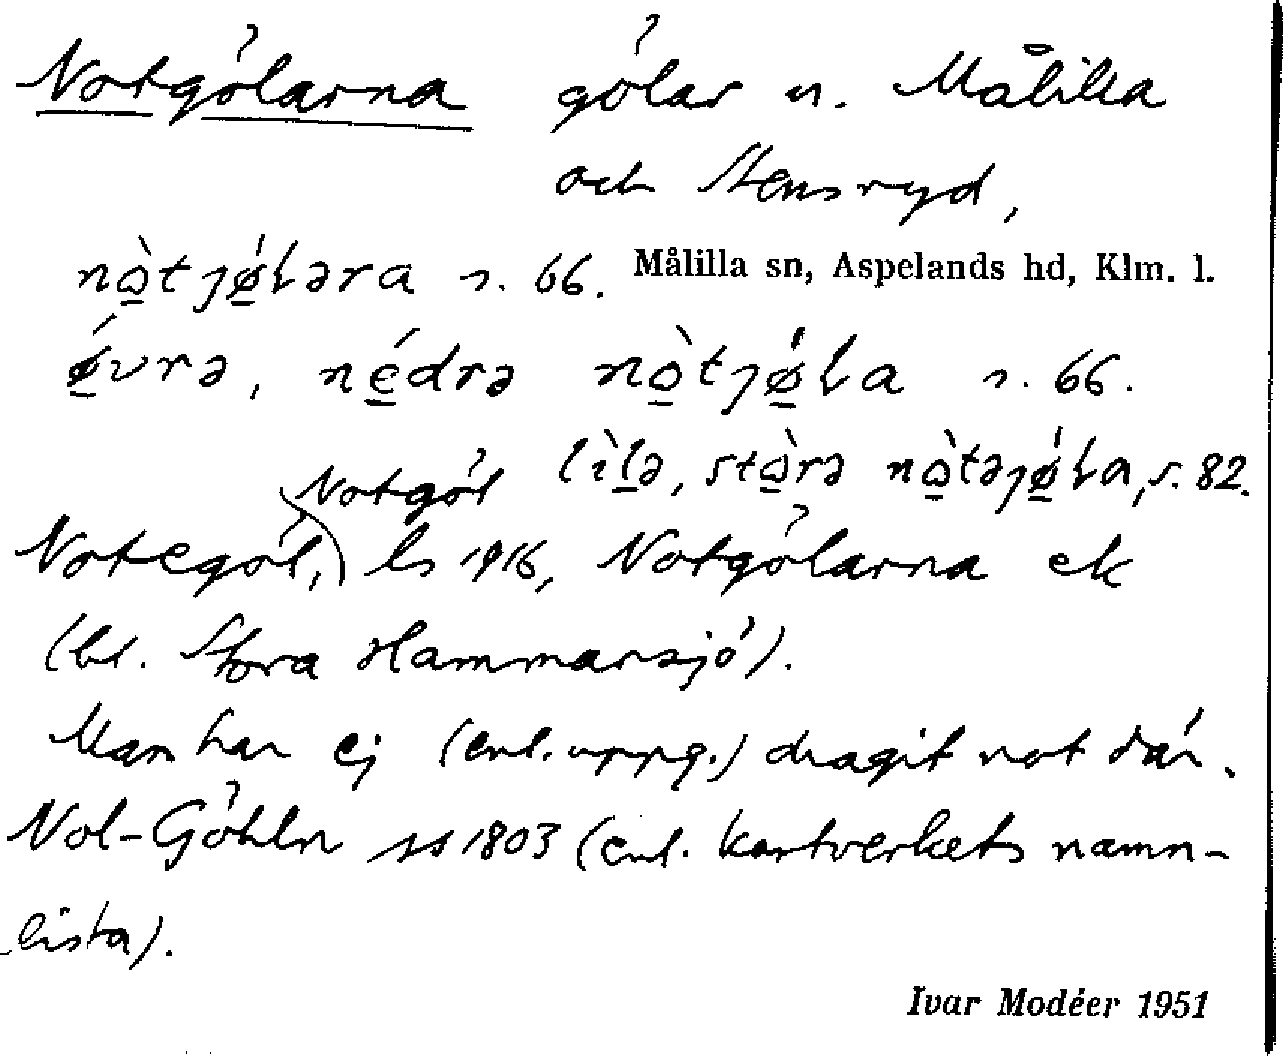 Notgölarna gölar u. Målilla
och Stensryd,
nò̱tjǿ̱ɫəra s. 66. Målilla sn, Aspelands hd, Klm. l.
ǿ̱vrə, né̱drə nò̱tjǿ̱ɫa s. 66.
lìḻə, stò̱rə nò̱təjǿ̱ɫa, s. 82.
Notgöl
Notegöl, ls 1916, Notgölarna ek
(bl. Stora Hammarsjö).
Man har ej (enl. uppg.) dragit not där.
Nol-Göhln ss 1803 (enl. kartverkets namn-
lista).
Ivar Modéer 1951